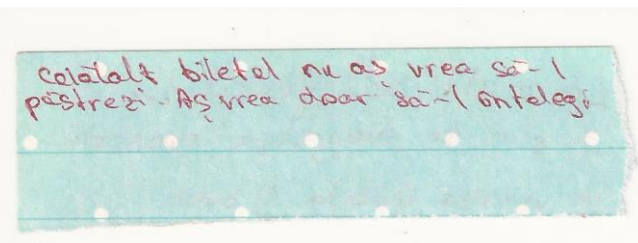 Celălalt bilețel nu aș vrea să-l
păstrezi. Aș vrea doar să-l înțelegi